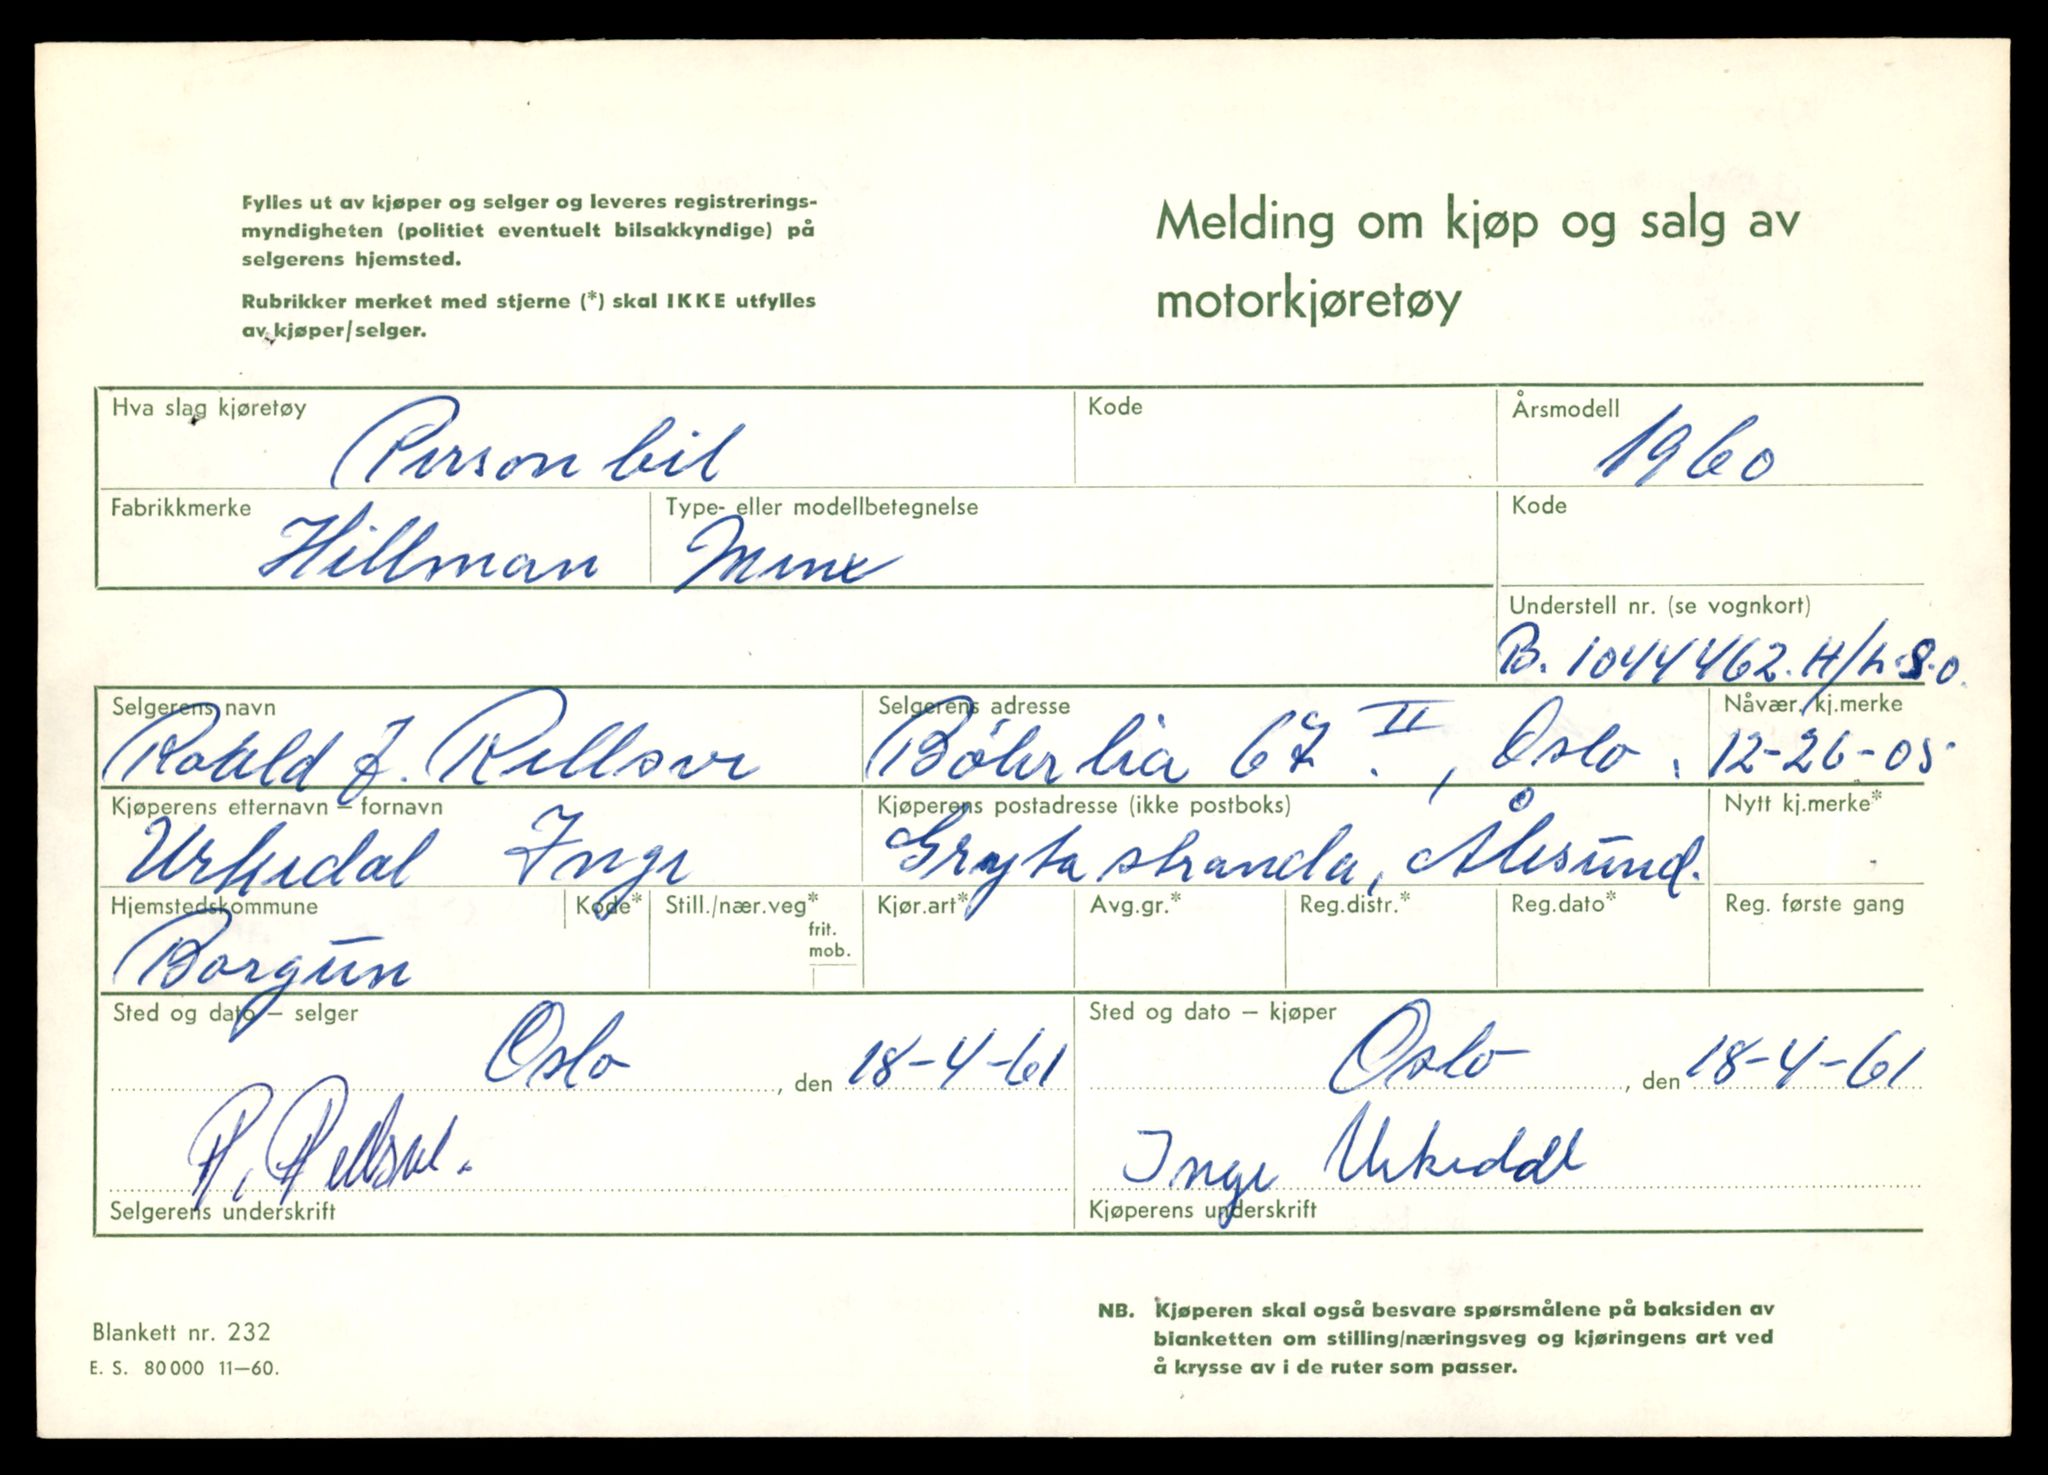 Fylles ut av kjøper og selger og leveres registrerings-
myndigheten (politiet eventuelt bilsakkyndige) på
selgerens hjemsted.
Rubrikker merket med stjerne (*) skal IKKE utfylles
av kjøper/selger.
Melding om kjøp og salg av
motorkjøretøy
Hva slag kjøretøy Kode Årsmodell
Personbil 1960
Fabrikkmerke Type- eller modellbetegnelse Kode
Hillman Minx
Understell nr. (se vognkort)
B. 1044462.H/h.S.O.
Selgerens navn Selgerens adresse Nåvær. kj.merke
Roald J. Rellsve Bøhrlia 67 II, Oslo. 12-26-05
Kjøperens etternavn – fornavn Kjøperens postadresse (ikke postboks) Nytt kj.merke*
Urkedal Inge Grytastranda, Ålesund.
Hjemstedskommune Kode* Still./nær.veg* frit. mob. Kjør.art* Avg.gr.* Reg.distr.* Reg.dato* Reg. første gang
Borgun
Sted og dato – selger Sted og dato – kjøper
Oslo, den 18-4-61 Oslo, den 18-4-61
R. Rellsve. Inge Urkedal
Selgerens underskrift Kjøperens underskrift
Blankett nr. 232
E. S. 80000 11–60.
NB. Kjøperen skal også besvare spørsmålene på baksiden av
blanketten om stilling/næringsveg og kjøringens art ved
å krysse av i de ruter som passer.